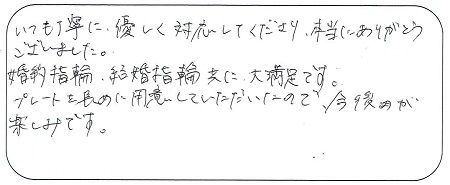 いつも丁寧に、優しく対応してくださり、本当にありがとう
ございました。
婚約指輪、結婚指輪共に、大満足です。
プレートを長めに用意していただいたので、今後のが
楽しみです。